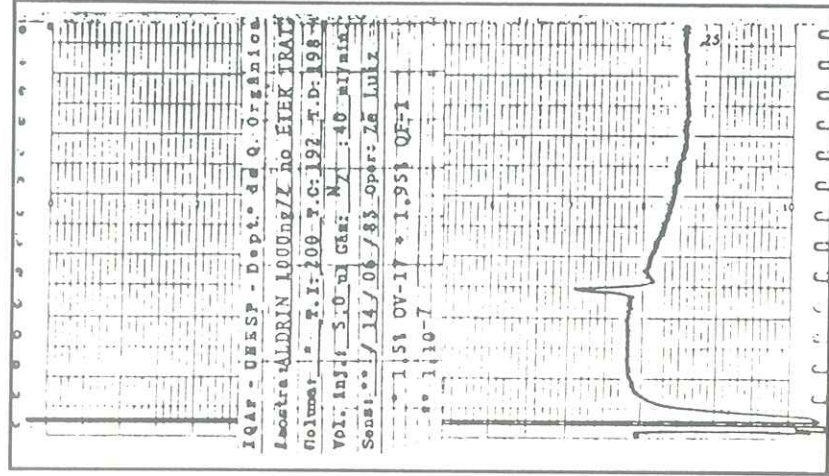 IQAP - UNESP - Dept.º de Q. Orgânica
Amostra: ALDRIN 1000ng/l no ETER TRAT.
Coluna: * T.I: 200 T.C: 192 T.D: 198
Vol. inj.: 5,0 ul Gás: N2 : 40 ml/min
Sens: ** / 14 / 06 / 83 Oper: Zé Luiz
* 1.5% OV-17 + 1.95% QF-1
** 1 10-7
25
10